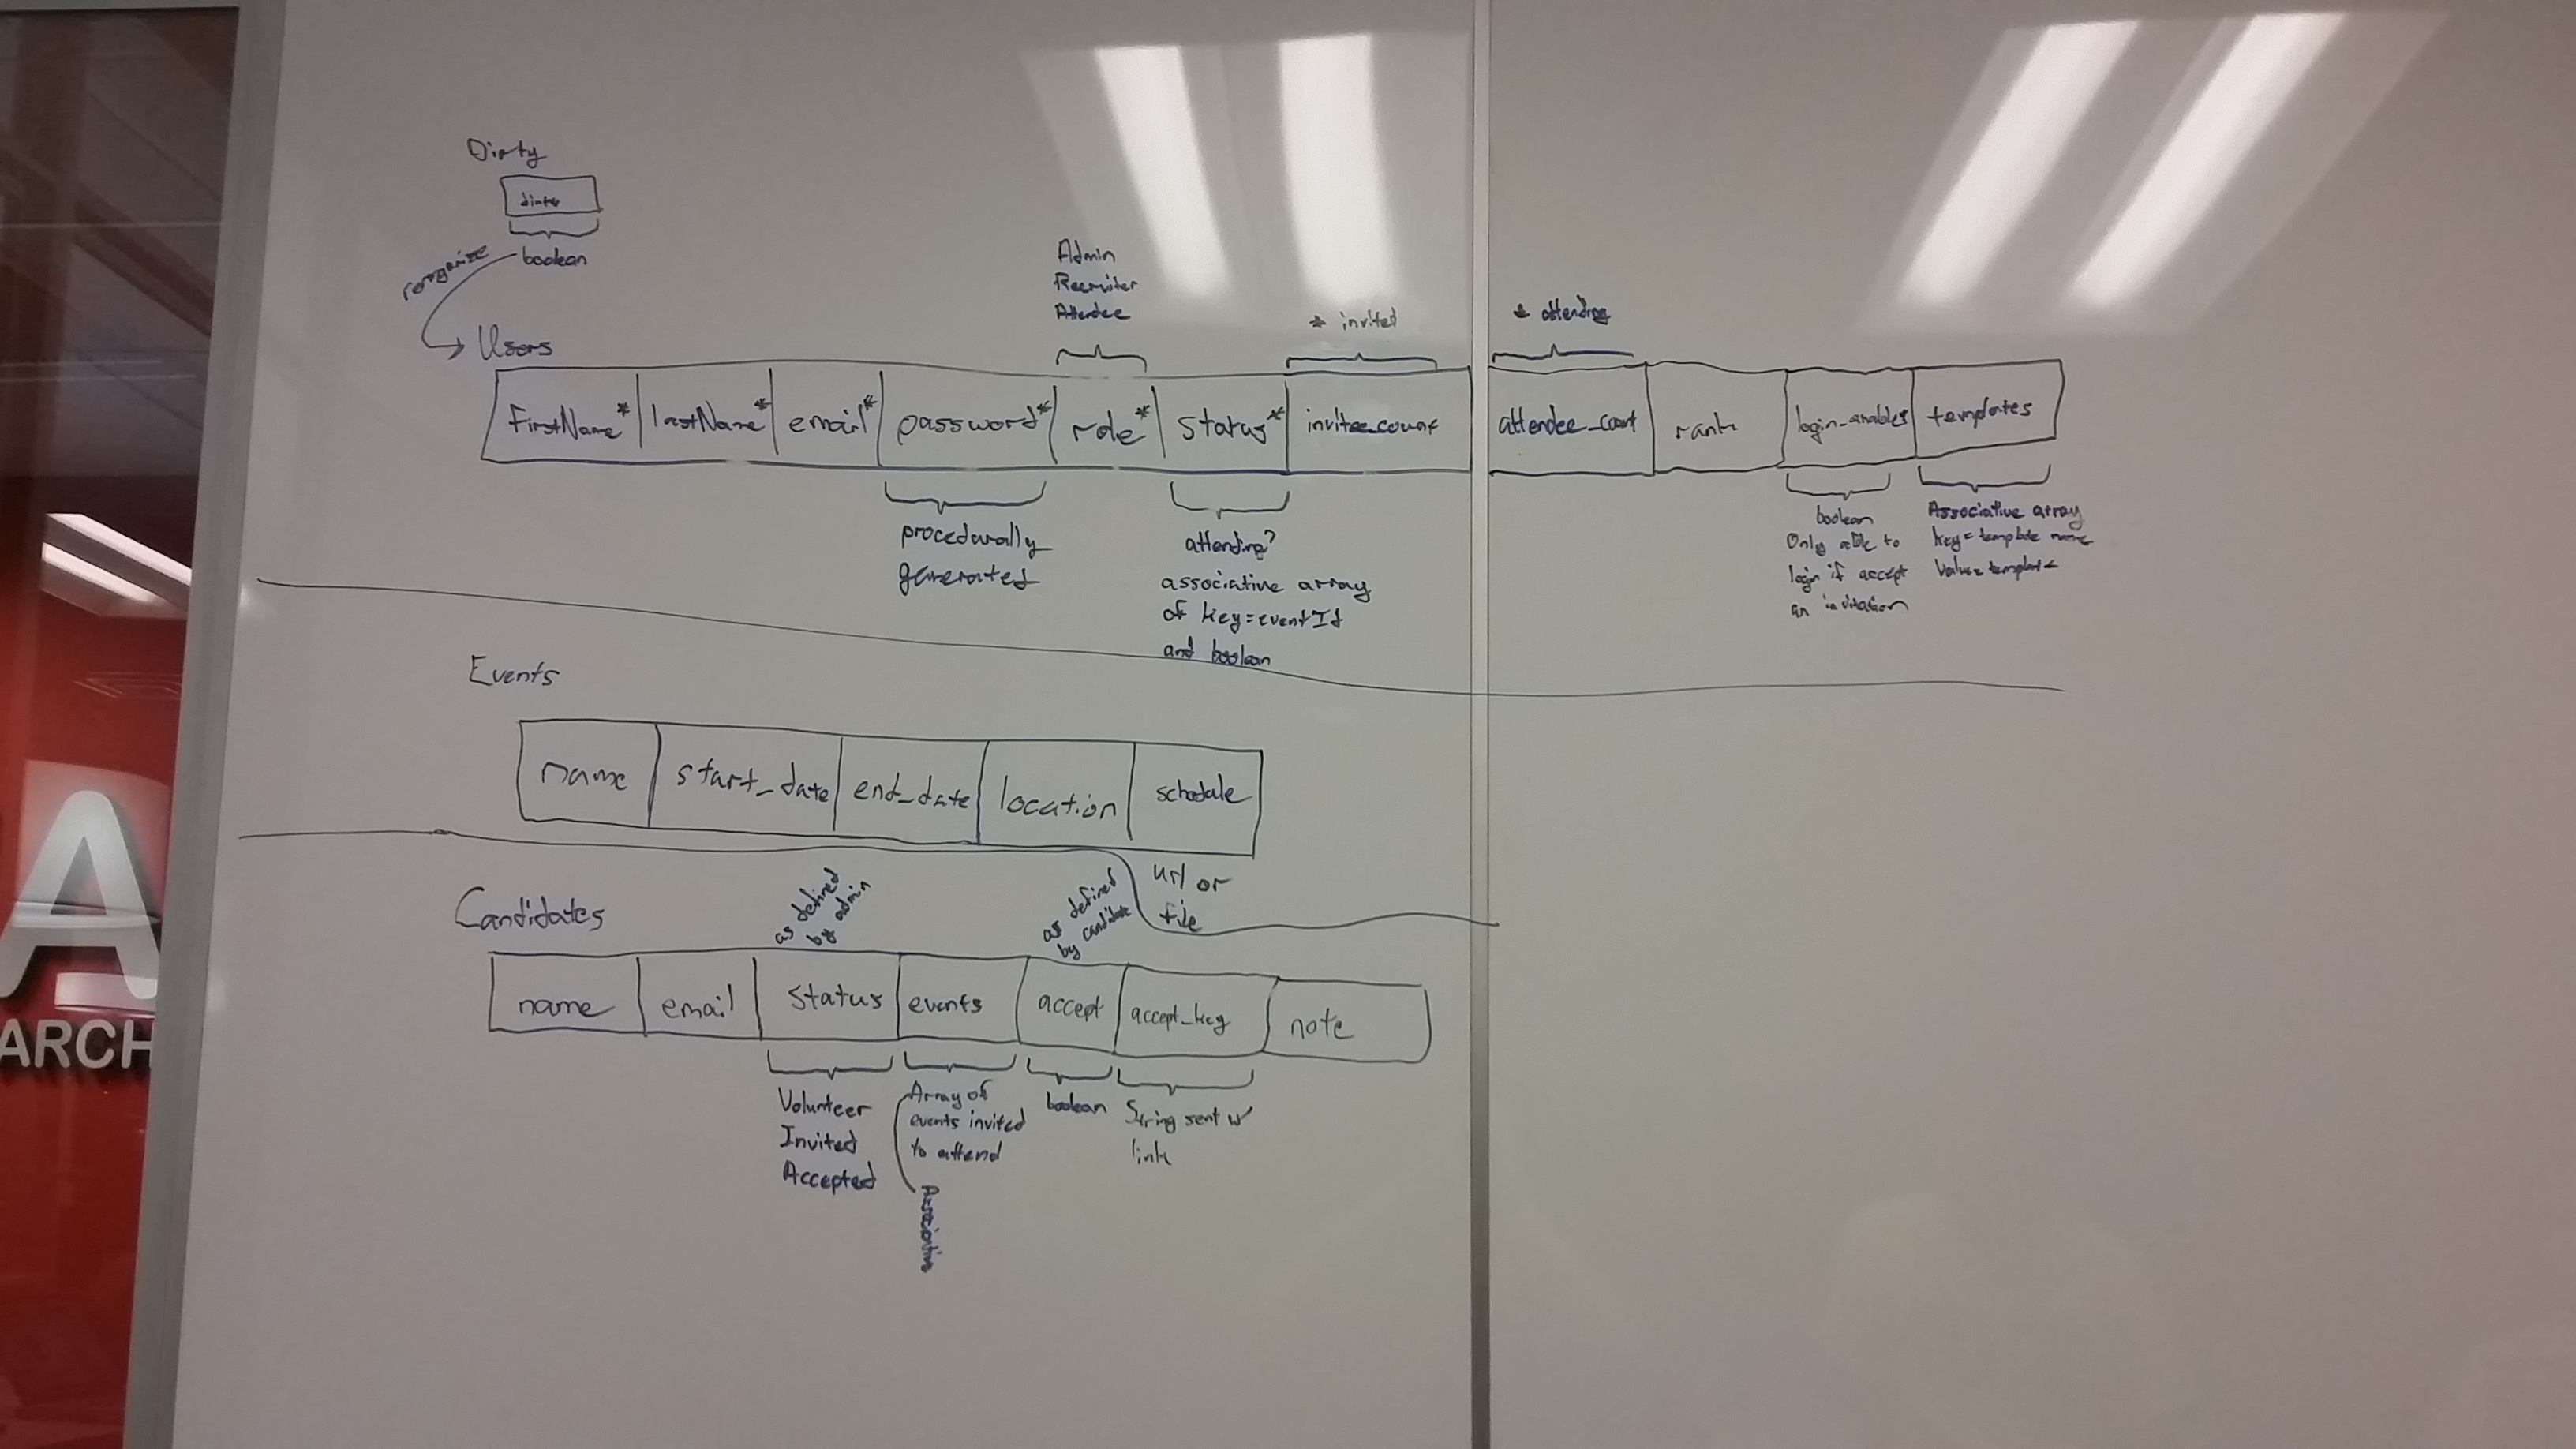 Dirty
dirty
boolean
reorganize
Admin
Recruiter
Attendee
* invited
* attending
Users
FirstName* lastName* email* password* role* status* invitee_count attendee_count rank login_enabled templates
procedurally
generated
attending?
associative array
of key=eventId
and boolean
boolean
Only able to
login if accept
an invitation
Associative array
key=template name
value=template
Events
name start_date end_date location schedule
url or
file
Candidates
as defined
by admin
as defined
by candidate
name email status events accept accept_key note
Volunteer
Invited
Accepted
Array of
events invited
to attend
Associative
boolean
String sent w/
link
A
ARCH